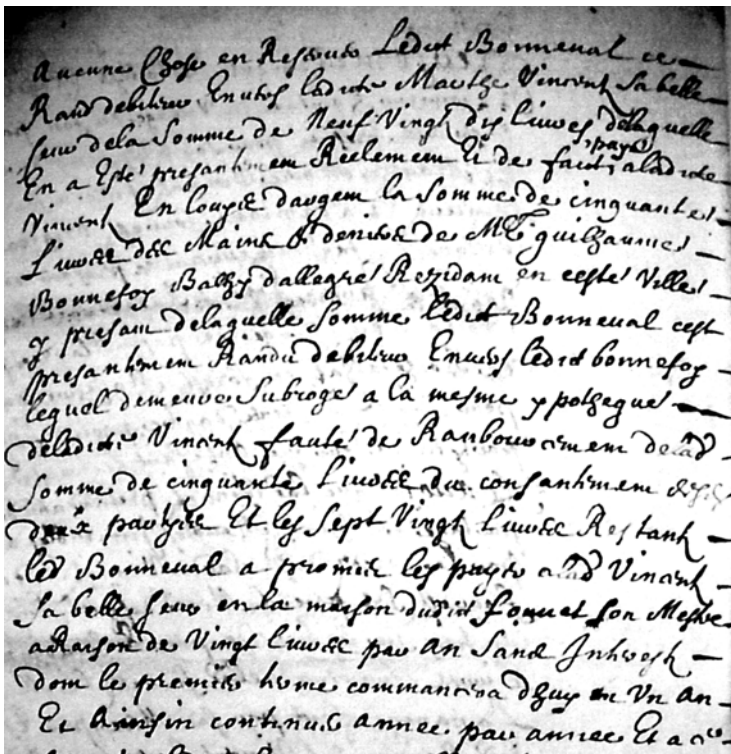 Aucune Chose en Reserves Ledict Bonneval ce
Rand debiteur Envers ladicte Marthe Vincent Sa belle
seur dela Somme de Neuf Vingt dix livres delaquelle
En a Esté presantement Reelement Et de faict payé aladicte
Vincent En loupve dargem la Somme de cinquante
Livres des Mains & deniers de Me guilhaume
Bonnefoy Bailly dallegre Rezidam en ceste Ville
y presam delaquelle Somme Ledict Bonneval cest
presantement Randu debiteur Envers ledict bonnefoy
lequel demeure Subroge a la mesme ypotheque
deladicte Vincent faute de Ranboursemem delad
Somme de cinquante Livres du consantemem
parties Et les Sept Vingt Livres Restant
led Bonneval a promis les payer alad Vincent
Sa belle Seur en la maison dudict fouuet son Mestre
a Raison de Vingt Livres par An Sans Intrest
dom le premier terme commancera dhuy en Un An
Et Ainsin continuer annee par annee Et a